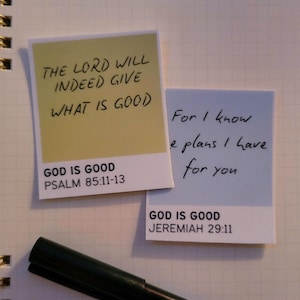 THE LORD WILL
INDEED GIVE
WHAT IS GOOD
GOD IS GOOD
PSALM 85:11-13
For I know
e plans I have
for you
GOD IS GOOD
JEREMIAH 29:11